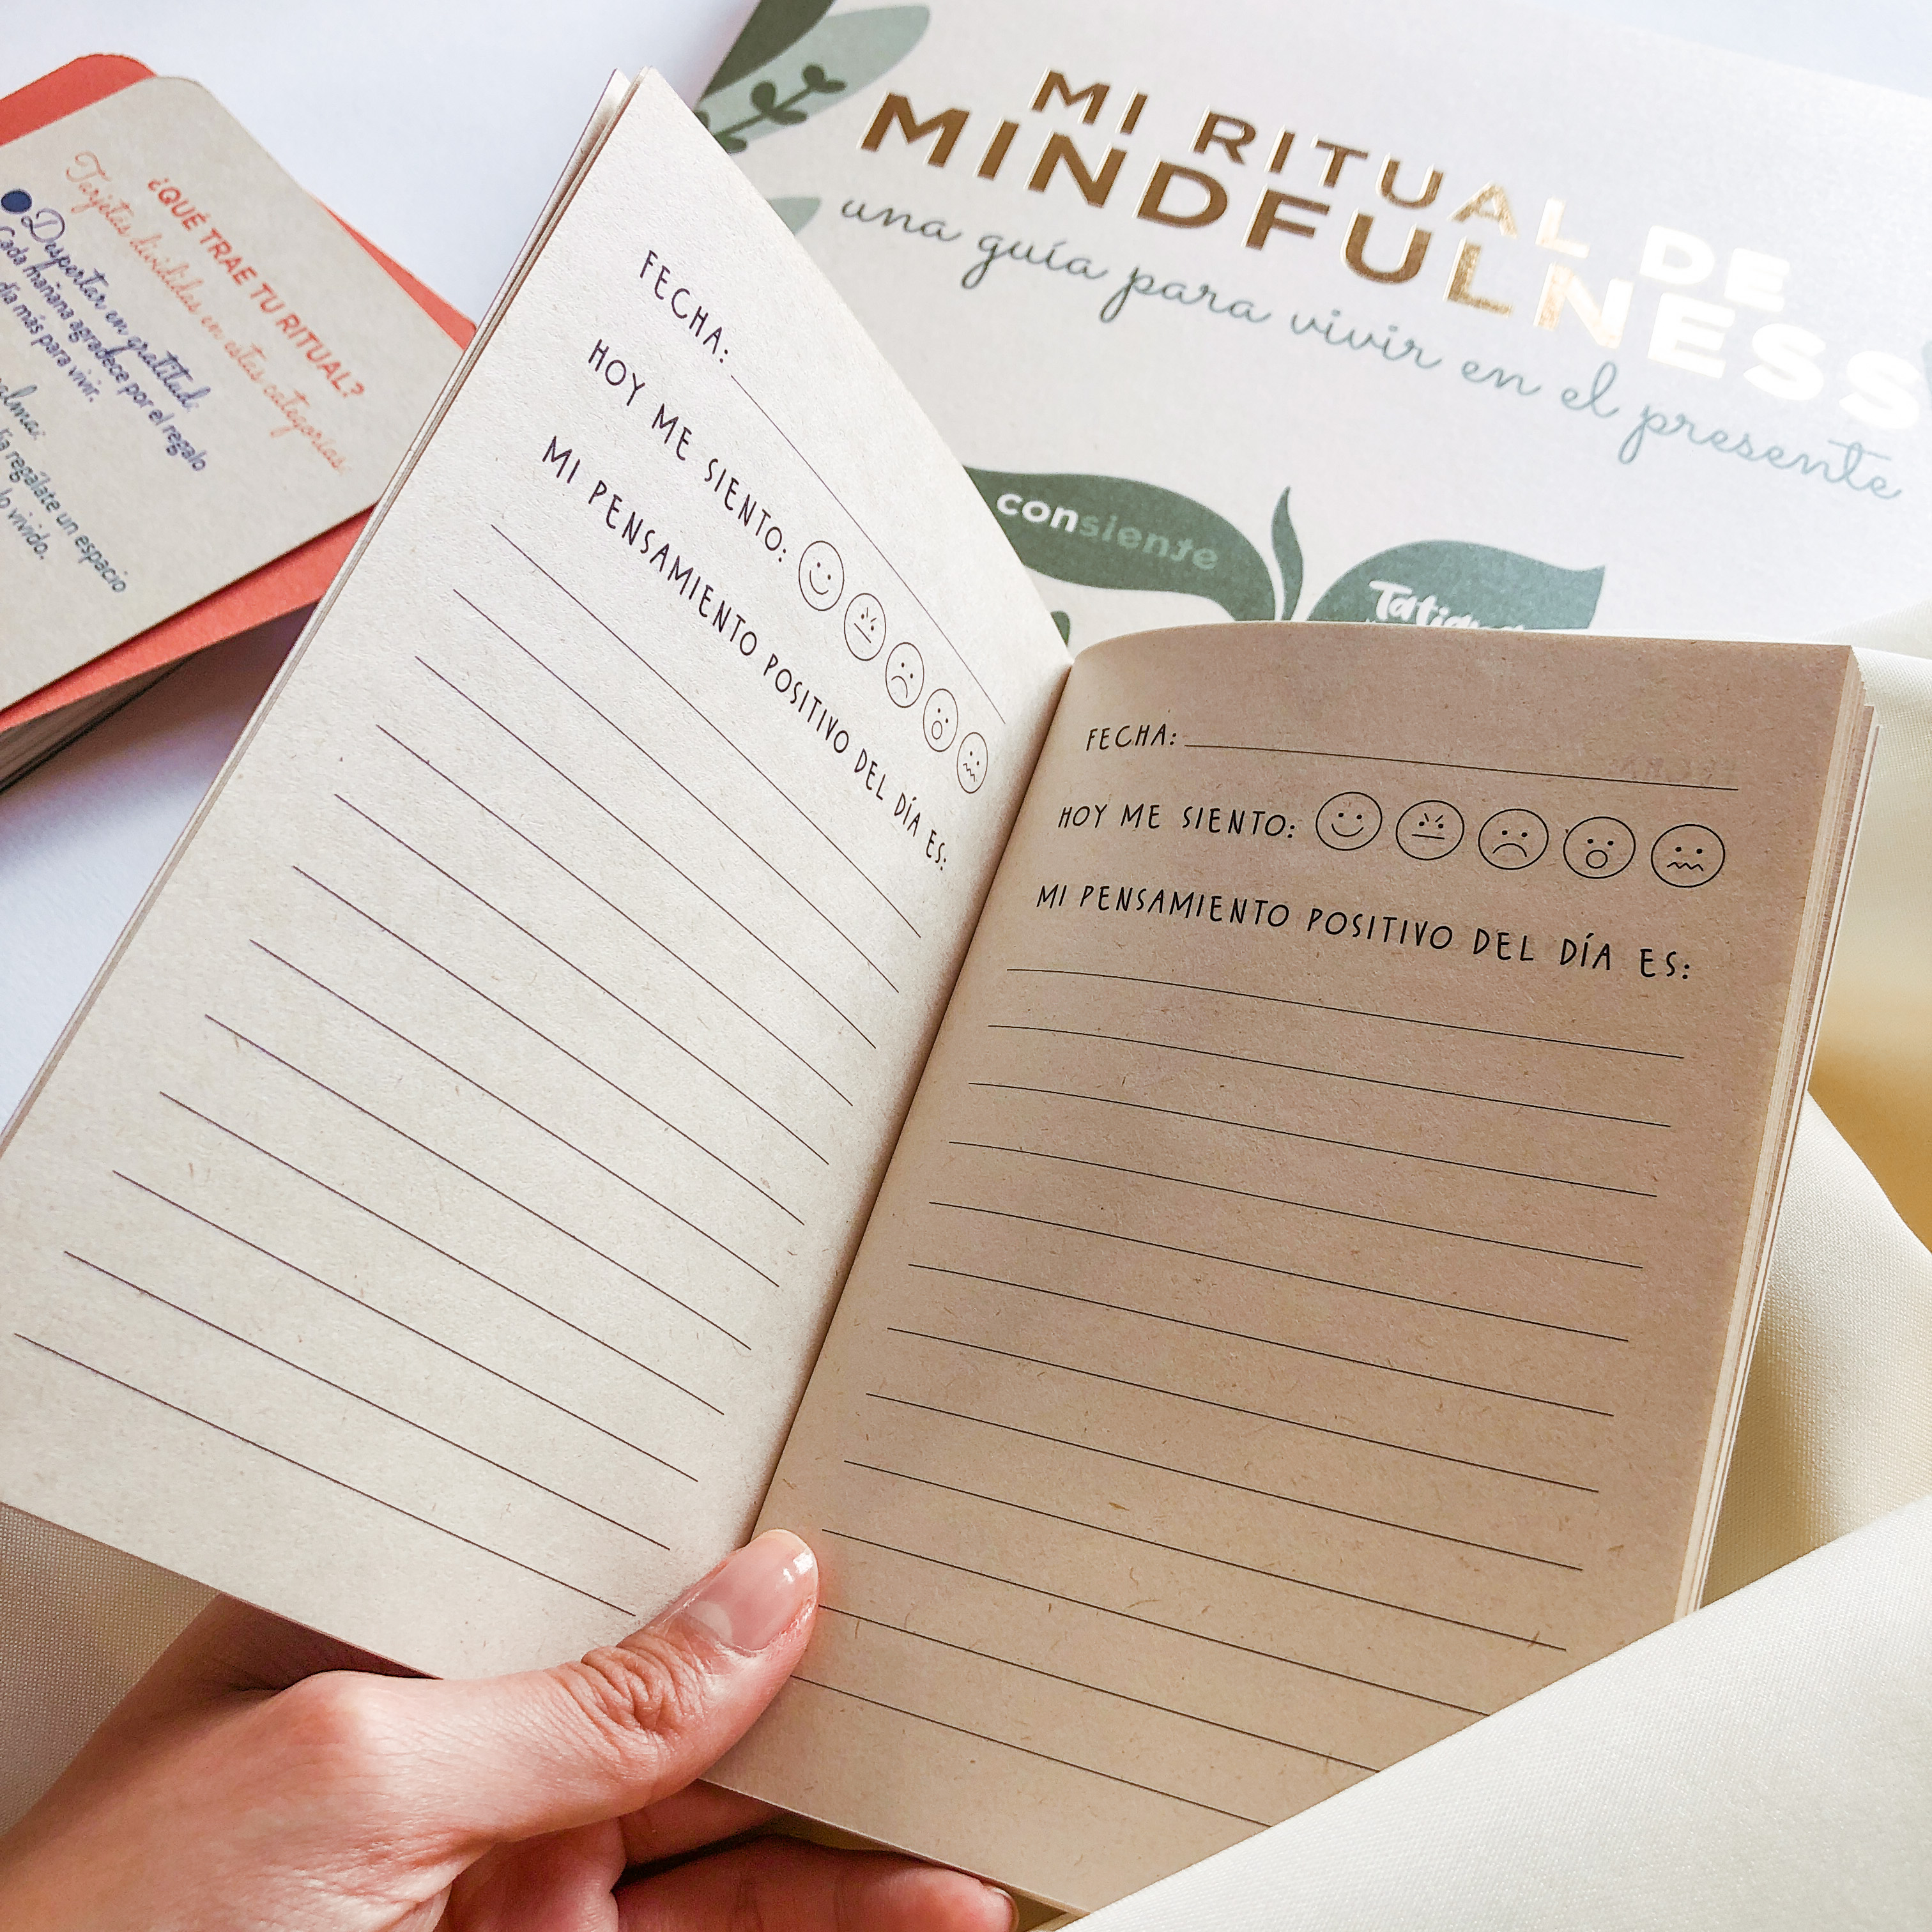 MI RITUAL DE
MINDFULNESS
una guía para vivir en el presente
consiente
¿QUÉ TRAE TU RITUAL?
Tarjetas divididas en estas categorías
Despertar en gratitud:
Cada mañana agradece por el regalo
día más para vivir.
regálate un espacio
lo vivido.
FECHA:
HOY ME SIENTO:
MI PENSAMIENTO POSITIVO DEL DÍA ES:
FECHA:
HOY ME SIENTO:
MI PENSAMIENTO POSITIVO DEL DÍA ES: